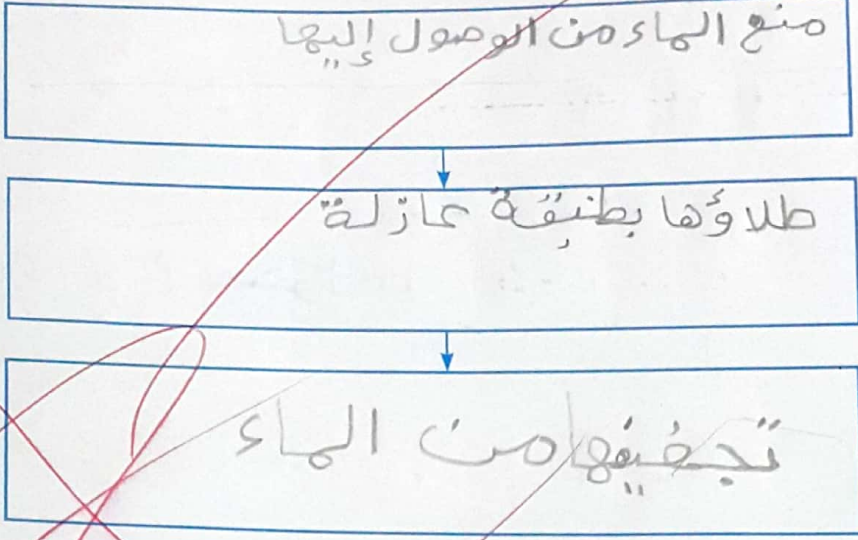 منع الماء من الوصول إليها
طلاؤها بطبقة عازلة
تجفيفها من الماء